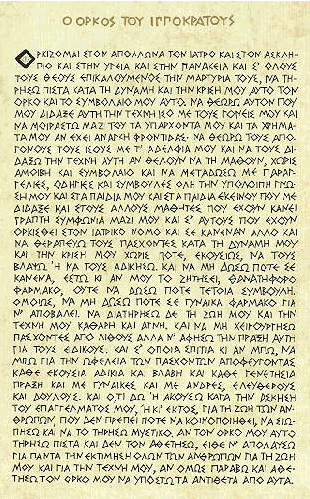 Ο ΟΡΚΟΣ ΤΟΥ ΙΠΠΟΚΡΑΤΟΥΣ
ΟΡΚΙΖΟΜΑΙ ΣΤΟΝ ΑΠΟΛΛΩΝΑ ΤΟΝ ΙΑΤΡΟ ΚΑΙ ΣΤΟΝ ΑΣΚΛΗ-
ΠΙΟ ΚΑΙ ΣΤΗΝ ΥΓΕΙΑ ΚΑΙ ΣΤΗΝ ΠΑΝΑΚΕΙΑ ΚΑΙ Σ' ΟΛΟΥΣ
ΤΟΥΣ ΘΕΟΥΣ ΕΠΙΚΑΛΟΥΜΕΝΟΣ ΤΗΝ ΜΑΡΤΥΡΙΑ ΤΟΥΣ, ΝΑ ΤΗ-
ΡΗΣΩ ΠΙΣΤΑ ΚΑΤΑ ΤΗ ΔΥΝΑΜΗ ΚΑΙ ΤΗΝ ΚΡΙΣΗ ΜΟΥ ΑΥΤΟ ΤΟΝ
ΟΡΚΟ ΚΑΙ ΤΟ ΣΥΜΒΟΛΑΙΟ ΜΟΥ ΑΥΤΟ. ΝΑ ΘΕΩΡΩ ΑΥΤΟΝ ΠΟΥ
ΜΟΥ ΔΙΔΑΞΕ ΑΥΤΗ ΤΗΝ ΤΕΧΝΗ ΙΣΟ ΜΕ ΤΟΥΣ ΓΟΝΕΙΣ ΜΟΥ ΚΑΙ
ΝΑ ΜΟΙΡΑΣΤΩ ΜΑΖΙ ΤΟΥ ΤΑ ΥΠΑΡΧΟΝΤΑ ΜΟΥ ΚΑΙ ΤΑ ΧΡΗΜΑ-
ΤΑ ΜΟΥ ΑΝ ΕΧΕΙ ΑΝΑΓΚΗ ΦΡΟΝΤΙΔΑΣ. ΝΑ ΘΕΩΡΩ ΤΟΥΣ ΑΠΟ-
ΓΟΝΟΥΣ ΤΟΥΣ ΙΣΟΥΣ ΜΕ Τ' ΑΔΕΛΦΙΑ ΜΟΥ ΚΑΙ ΝΑ ΤΟΥΣ ΔΙ-
ΔΑΞΩ ΤΗΝ ΤΕΧΝΗ ΑΥΤΗ ΑΝ ΘΕΛΟΥΝ ΝΑ ΤΗ ΜΑΘΟΥΝ, ΧΩΡΙΣ
ΑΜΟΙΒΗ ΚΑΙ ΣΥΜΒΟΛΑΙΟ ΚΑΙ ΝΑ ΜΕΤΑΔΩΣΩ ΜΕ ΠΑΡΑΓ-
ΓΕΛΙΕΣ, ΟΔΗΓΙΕΣ ΚΑΙ ΣΥΜΒΟΥΛΕΣ ΟΛΗ ΤΗΝ ΥΠΟΛΟΙΠΗ ΓΝΩ-
ΣΗ ΜΟΥ ΚΑΙ ΣΤΑ ΠΑΙΔΙΑ ΜΟΥ ΚΑΙ ΣΤΑ ΠΑΙΔΙΑ ΕΚΕΙΝΟΥ ΠΟΥ ΜΕ
ΔΙΔΑΞΕ ΚΑΙ ΣΤΟΥΣ ΑΛΛΟΥΣ ΜΑΘΗΤΕΣ ΠΟΥ ΕΧΟΥΝ ΚΑΝΕΙ
ΓΡΑΠΤΗ ΣΥΜΦΩΝΙΑ ΜΑΖΙ ΜΟΥ ΚΑΙ Σ' ΑΥΤΟΥΣ ΠΟΥ ΕΧΟΥΝ
ΟΡΚΙΣΘΕΙ ΣΤΟΝ ΙΑΤΡΙΚΟ ΝΟΜΟ ΚΑΙ ΣΕ ΚΑΝΕΝΑΝ ΑΛΛΟ ΚΑΙ
ΝΑ ΘΕΡΑΠΕΥΩ ΤΟΥΣ ΠΑΣΧΟΝΤΕΣ ΚΑΤΑ ΤΗ ΔΥΝΑΜΗ ΜΟΥ
ΚΑΙ ΤΗΝ ΚΡΙΣΗ ΜΟΥ ΧΩΡΙΣ ΠΟΤΕ, ΕΚΟΥΣΙΩΣ, ΝΑ ΤΟΥΣ
ΒΛΑΨΩ Ή ΝΑ ΤΟΥΣ ΑΔΙΚΗΣΩ. ΚΑΙ ΝΑ ΜΗ ΔΩΣΩ ΠΟΤΕ ΣΕ
ΚΑΝΕΝΑ, ΕΣΤΩ ΚΙ ΑΝ ΜΟΥ ΤΟ ΖΗΤΗΣΕΙ, ΘΑΝΑΤΗΦΟΡΟ
ΦΑΡΜΑΚΟ, ΟΥΤΕ ΝΑ ΔΩΣΩ ΠΟΤΕ ΤΕΤΟΙΑ ΣΥΜΒΟΥΛΗ.
ΟΜΟΙΩΣ, ΝΑ ΜΗ ΔΩΣΩ ΠΟΤΕ ΣΕ ΓΥΝΑΙΚΑ ΦΑΡΜΑΚΟ ΓΙΑ
Ν' ΑΠΟΒΑΛΕΙ. ΝΑ ΔΙΑΤΗΡΗΣΩ ΔΕ ΤΗ ΖΩΗ ΜΟΥ ΚΑΙ ΤΗΝ
ΤΕΧΝΗ ΜΟΥ ΚΑΘΑΡΗ ΚΑΙ ΑΓΝΗ. ΚΑΙ ΝΑ ΜΗ ΧΕΙΡΟΥΡΓΗΣΩ
ΠΑΣΧΟΝΤΕΣ ΑΠΟ ΛΙΘΟΥΣ ΑΛΛΑ Ν' ΑΦΗΣΩ ΤΗΝ ΠΡΑΞΗ ΑΥΤΗ
ΓΙΑ ΤΟΥΣ ΕΙΔΙΚΟΥΣ. ΚΑΙ Σ' ΟΠΟΙΑ ΣΠΙΤΙΑ ΚΙ ΑΝ ΜΠΩ, ΝΑ
ΜΠΩ ΓΙΑ ΤΗΝ ΩΦΕΛΕΙΑ ΤΩΝ ΠΑΣΧΟΝΤΩΝ ΑΠΟΦΕΥΓΟΝΤΑΣ
ΚΑΘΕ ΕΚΟΥΣΙΑ ΑΔΙΚΙΑ ΚΑΙ ΒΛΑΒΗ ΚΑΙ ΚΑΘΕ ΓΕΝΕΤΗΣΙΑ
ΠΡΑΞΗ ΚΑΙ ΜΕ ΓΥΝΑΙΚΕΣ ΚΑΙ ΜΕ ΑΝΔΡΕΣ, ΕΛΕΥΘΕΡΟΥΣ
ΚΑΙ ΔΟΥΛΟΥΣ. ΚΑΙ Ο,ΤΙ ΔΩ Ή ΑΚΟΥΣΩ ΚΑΤΑ ΤΗΝ ΑΣΚΗΣΗ
ΤΟΥ ΕΠΑΓΓΕΛΜΑΤΟΣ ΜΟΥ, Ή ΚΙ ΕΚΤΟΣ, ΓΙΑ ΤΗ ΖΩΗ ΤΩΝ ΑΝ-
ΘΡΩΠΩΝ, ΠΟΥ ΔΕΝ ΠΡΕΠΕΙ ΠΟΤΕ ΝΑ ΚΟΙΝΟΠΟΙΗΘΕΙ, ΝΑ ΣΙΩ-
ΠΗΣΩ ΚΑΙ ΝΑ ΤΟ ΤΗΡΗΣΩ ΜΥΣΤΙΚΟ. ΑΝ ΤΟΝ ΟΡΚΟ ΜΟΥ ΑΥΤΟ
ΤΗΡΗΣΩ ΠΙΣΤΑ ΚΑΙ ΔΕΝ ΤΟΝ ΑΘΕΤΗΣΩ, ΕΙΘΕ Ν' ΑΠΟΛΑΥΣΩ
ΓΙΑ ΠΑΝΤΑ ΤΗΝ ΕΚΤΙΜΗΣΗ ΟΛΩΝ ΤΩΝ ΑΝΘΡΩΠΩΝ ΓΙΑ ΤΗ ΖΩΗ
ΜΟΥ ΚΑΙ ΓΙΑ ΤΗΝ ΤΕΧΝΗ ΜΟΥ, ΑΝ ΟΜΩΣ ΠΑΡΑΒΩ ΚΑΙ ΑΘΕ-
ΤΗΣΩ ΤΟΝ ΟΡΚΟ ΜΟΥ ΝΑ ΥΠΟΣΤΩ ΤΑ ΑΝΤΙΘΕΤΑ ΑΠΟ ΑΥΤΑ.